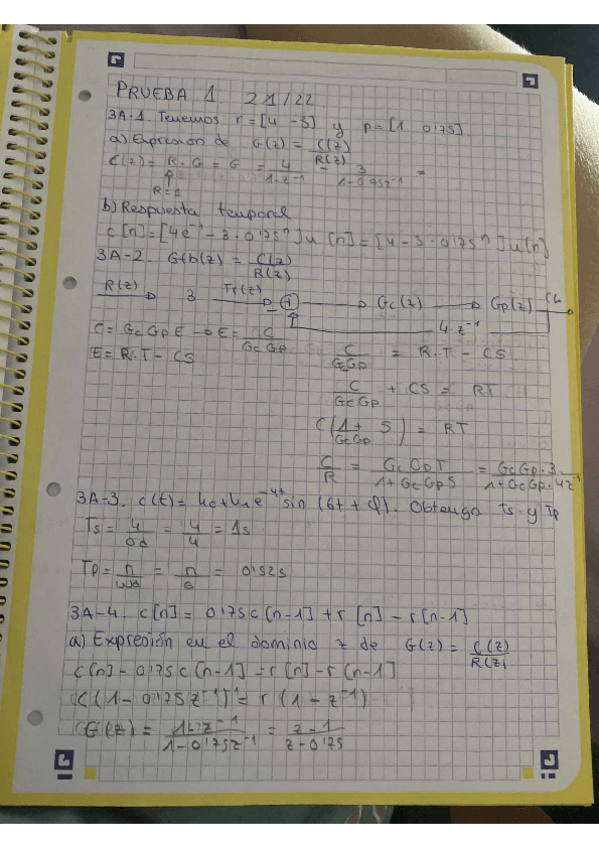 PRUEBA 1. 21/22
3A-1. Tenemos r=[4 -3] y p=[1 0'75]
a) Expresion de G(z) = C(z)/R(z)
C(z)= R·G = G = 4/1-z⁻¹ - 3/1-0'75z⁻¹ =
R=1
b) Respuesta temporal
c[n]=[4e⁻¹-3·0'75ⁿ]u[n]=[4-3·0'75ⁿ]u[n]
3A-2. Gfb(z) = C(z)/R(z)
R(z) 3 Tr(z) + Gc(z) Gp(z)
-
4·z⁻¹
C= GcGpE → E= C/GcGp C/GcGp = R·T - CS
E= R·T - CS
C/GcGp + CS = RT
C(1/GcGp + S) = RT
C/R = GcGpT/1+GcGpS = GcGp·3/1+GcGp·4z⁻¹
3A-3. c(t)= k0+k1e⁻⁴ᵗsin(6t+φ). Obtenga Ts y Tp
Ts= 4/σd = 4/4 = 1s
Tp= π/ωd = π/6 = 0'52s
3A-4. c[n]= 0'75c[n-1]+r[n]-r[n-1]
a) Expresión en el dominio z de G(z)= C(z)/R(z)
c[n]-0'75c[n-1]=r[n]-r[n-1]
C(1-0'75z⁻¹)=r(1-z⁻¹)
G(z)= 1-z⁻¹/1-0'75z⁻¹ = z-1/z-0'75